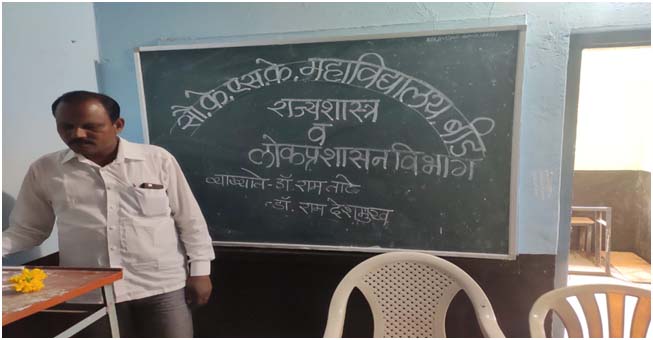 सौ.के.एस.के. महाविद्यालय बीड
राज्यशास्त्र
व
लोकप्रशासन विभाग
व्याख्याते - डॉ. राम नाटे
- डॉ. राम देशमुख